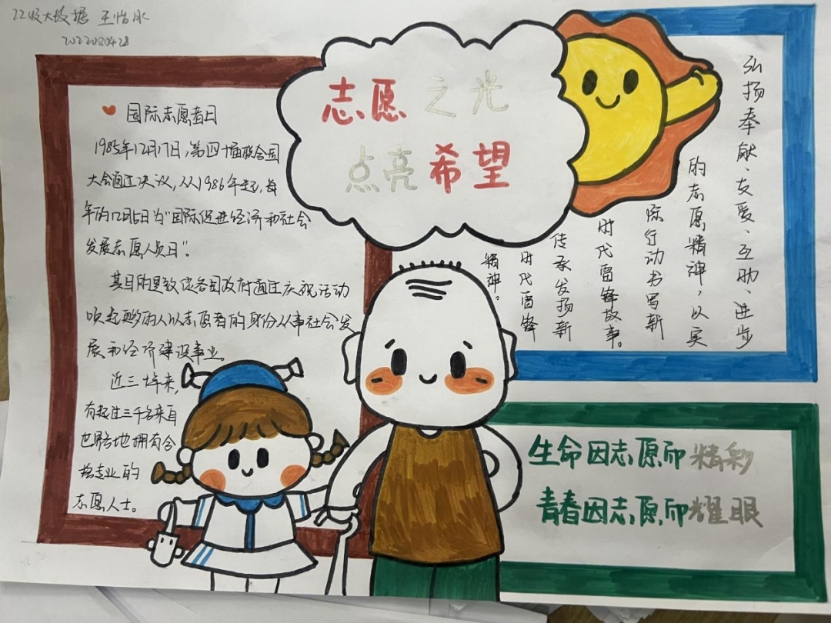 22级大数据 王怡冰
2022080428
志愿之光
点亮希望
国际志愿者日
1985年12月17日，第四十届联合国
大会通过决议，从1986年起，每
年的12月5日为“国际促进经济和社会
发展志愿人员日”。
其目的是敦促各国政府通过庆祝活动
唤起更多的人以志愿者的身份从事社会发
展和经济建设事业。
近三十年来，
有超过三千名来自
世界各地拥有合
格专业的
志愿人士。
弘扬奉献、友爱、互助、进步
的志愿精神，以实
际行动书写新
时代雷锋故事。
传承发扬新
时代雷锋
精神。
生命因志愿而精彩
青春因志愿而耀眼